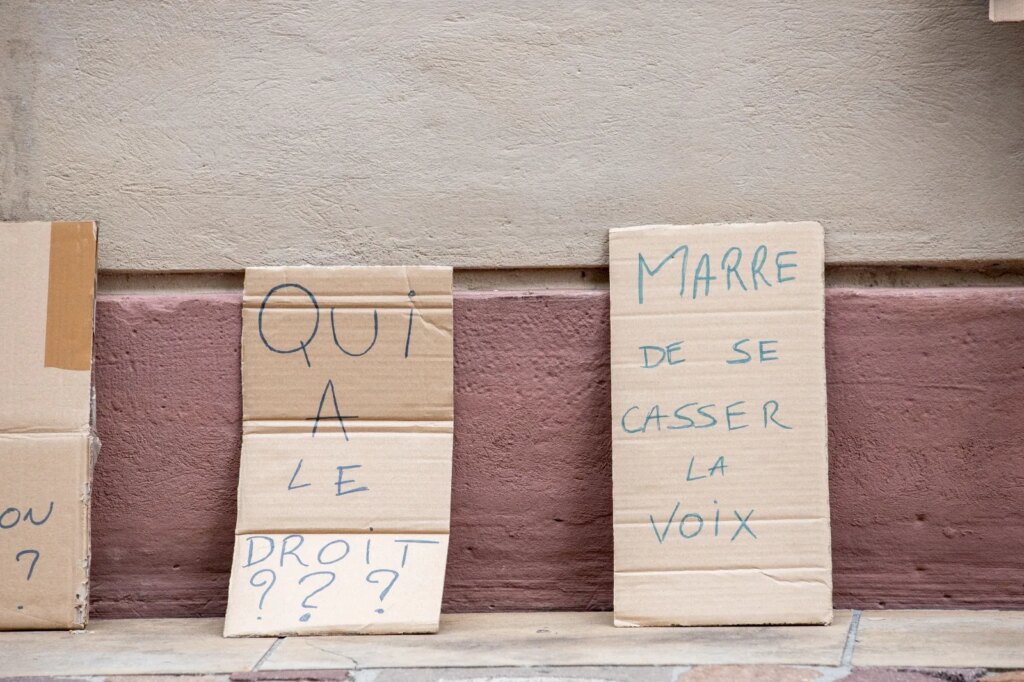 ON
?
QUi
A
LE
DROiT
???
MARRE
DE SE
CASSER
LA
VOiX